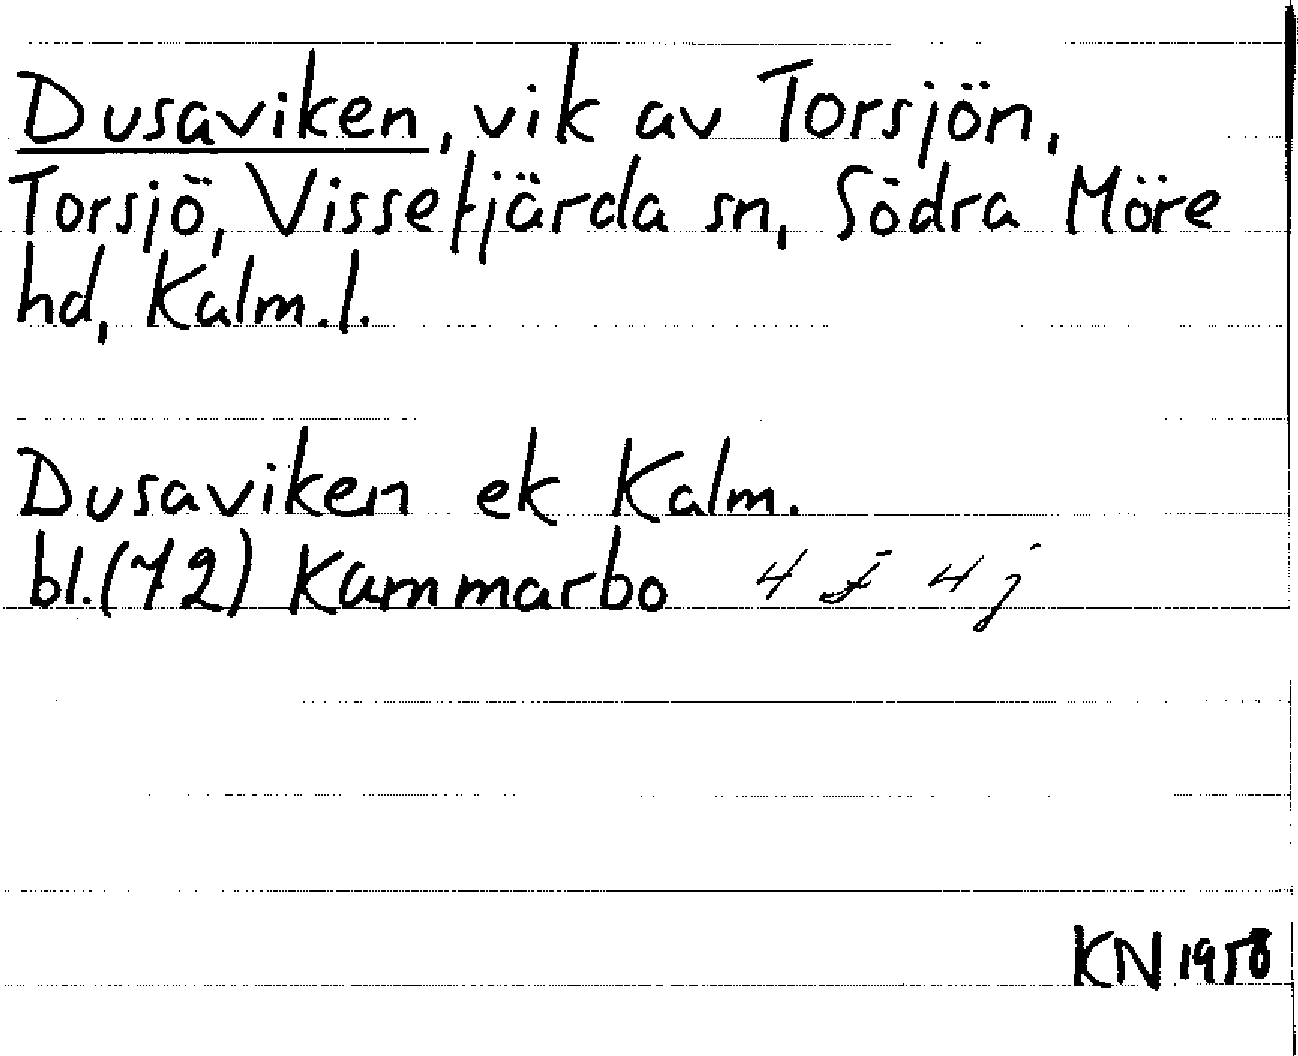 Dusaviken, vik av Torsjön,
Torsjö, Vissefjärda sn, Södra Möre
hd, Kalm.l.
Dusaviken ek Kalm.
bl.(72) Kammarbo 4 F 4 j
KN 1958